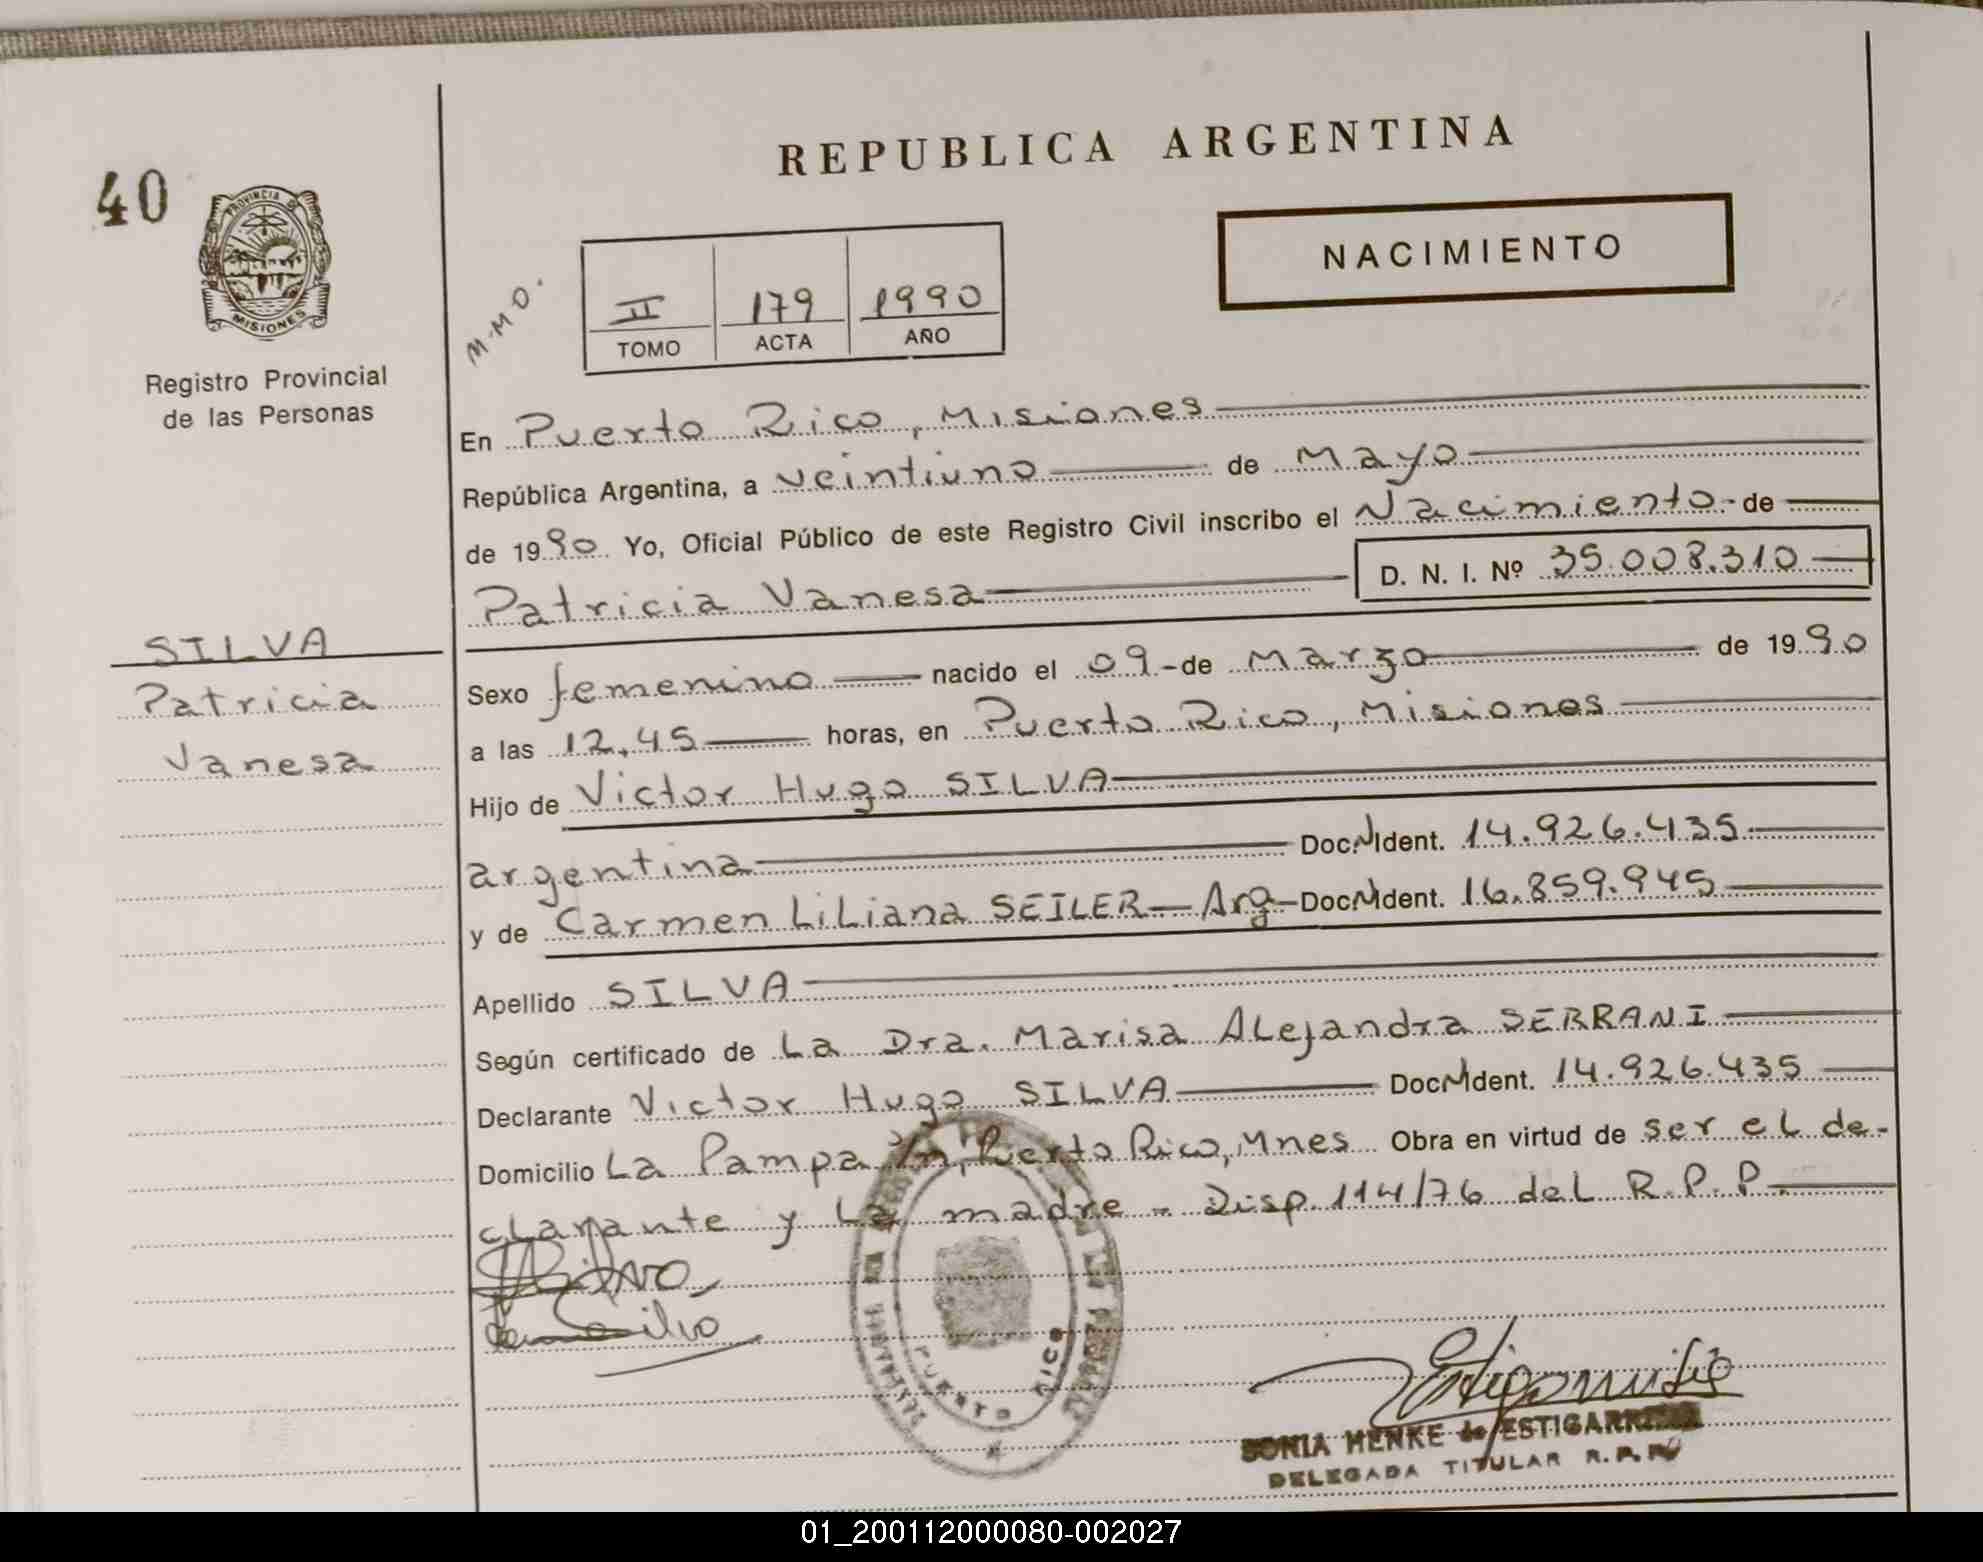 REPUBLICA ARGENTINA
40
PROVINCIA DE
MISIONES
Registro Provincial
de las Personas
NACIMIENTO
M-M O.
II 179 1990
TOMO ACTA AÑO
En Puerto Rico, Misiones
República Argentina, a veintiuno de Mayo
de 1990 Yo, Oficial Público de este Registro Civil inscribo el Nacimiento - de
Patricia Vanesa D. N. I. Nº 35.008.310
SILVA
Patricia
Vanesa
Sexo femenino nacido el 09 - de Marzo de 1990
a las 12,45 horas, en Puerto Rico, Misiones
Hijo de Victor Hugo SILVA
argentina Doc.N.Ident. 14.926.435
y de Carmen Liliana SEILER — Arg — Doc.N.Ident. 16.859.945
Apellido SILVA
Según certificado de La Dra. Marisa Alejandra SERRANI
Declarante Victor Hugo SILVA Doc.N.Ident. 14.926.435
Domicilio La Pampa s/n, Puerto Rico, Mnes Obra en virtud de ser el de-
clarante y la madre - Disp. 114/76 del R.P.P.
PUERTO RICO
SONIA HENKE de ESTIGARRIBIA
DELEGADA TITULAR R.P.P.
01_200112000080-002027